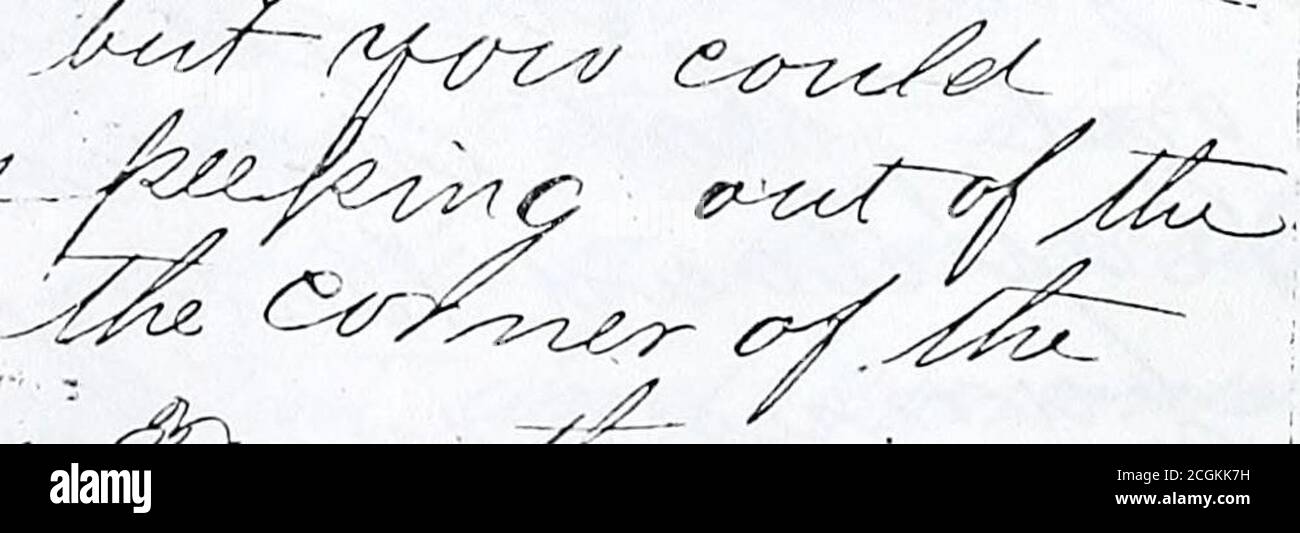 but you could
peeping out of the
the corner of the
alamy
Image ID: 2CGKK7H
www.alamy.com